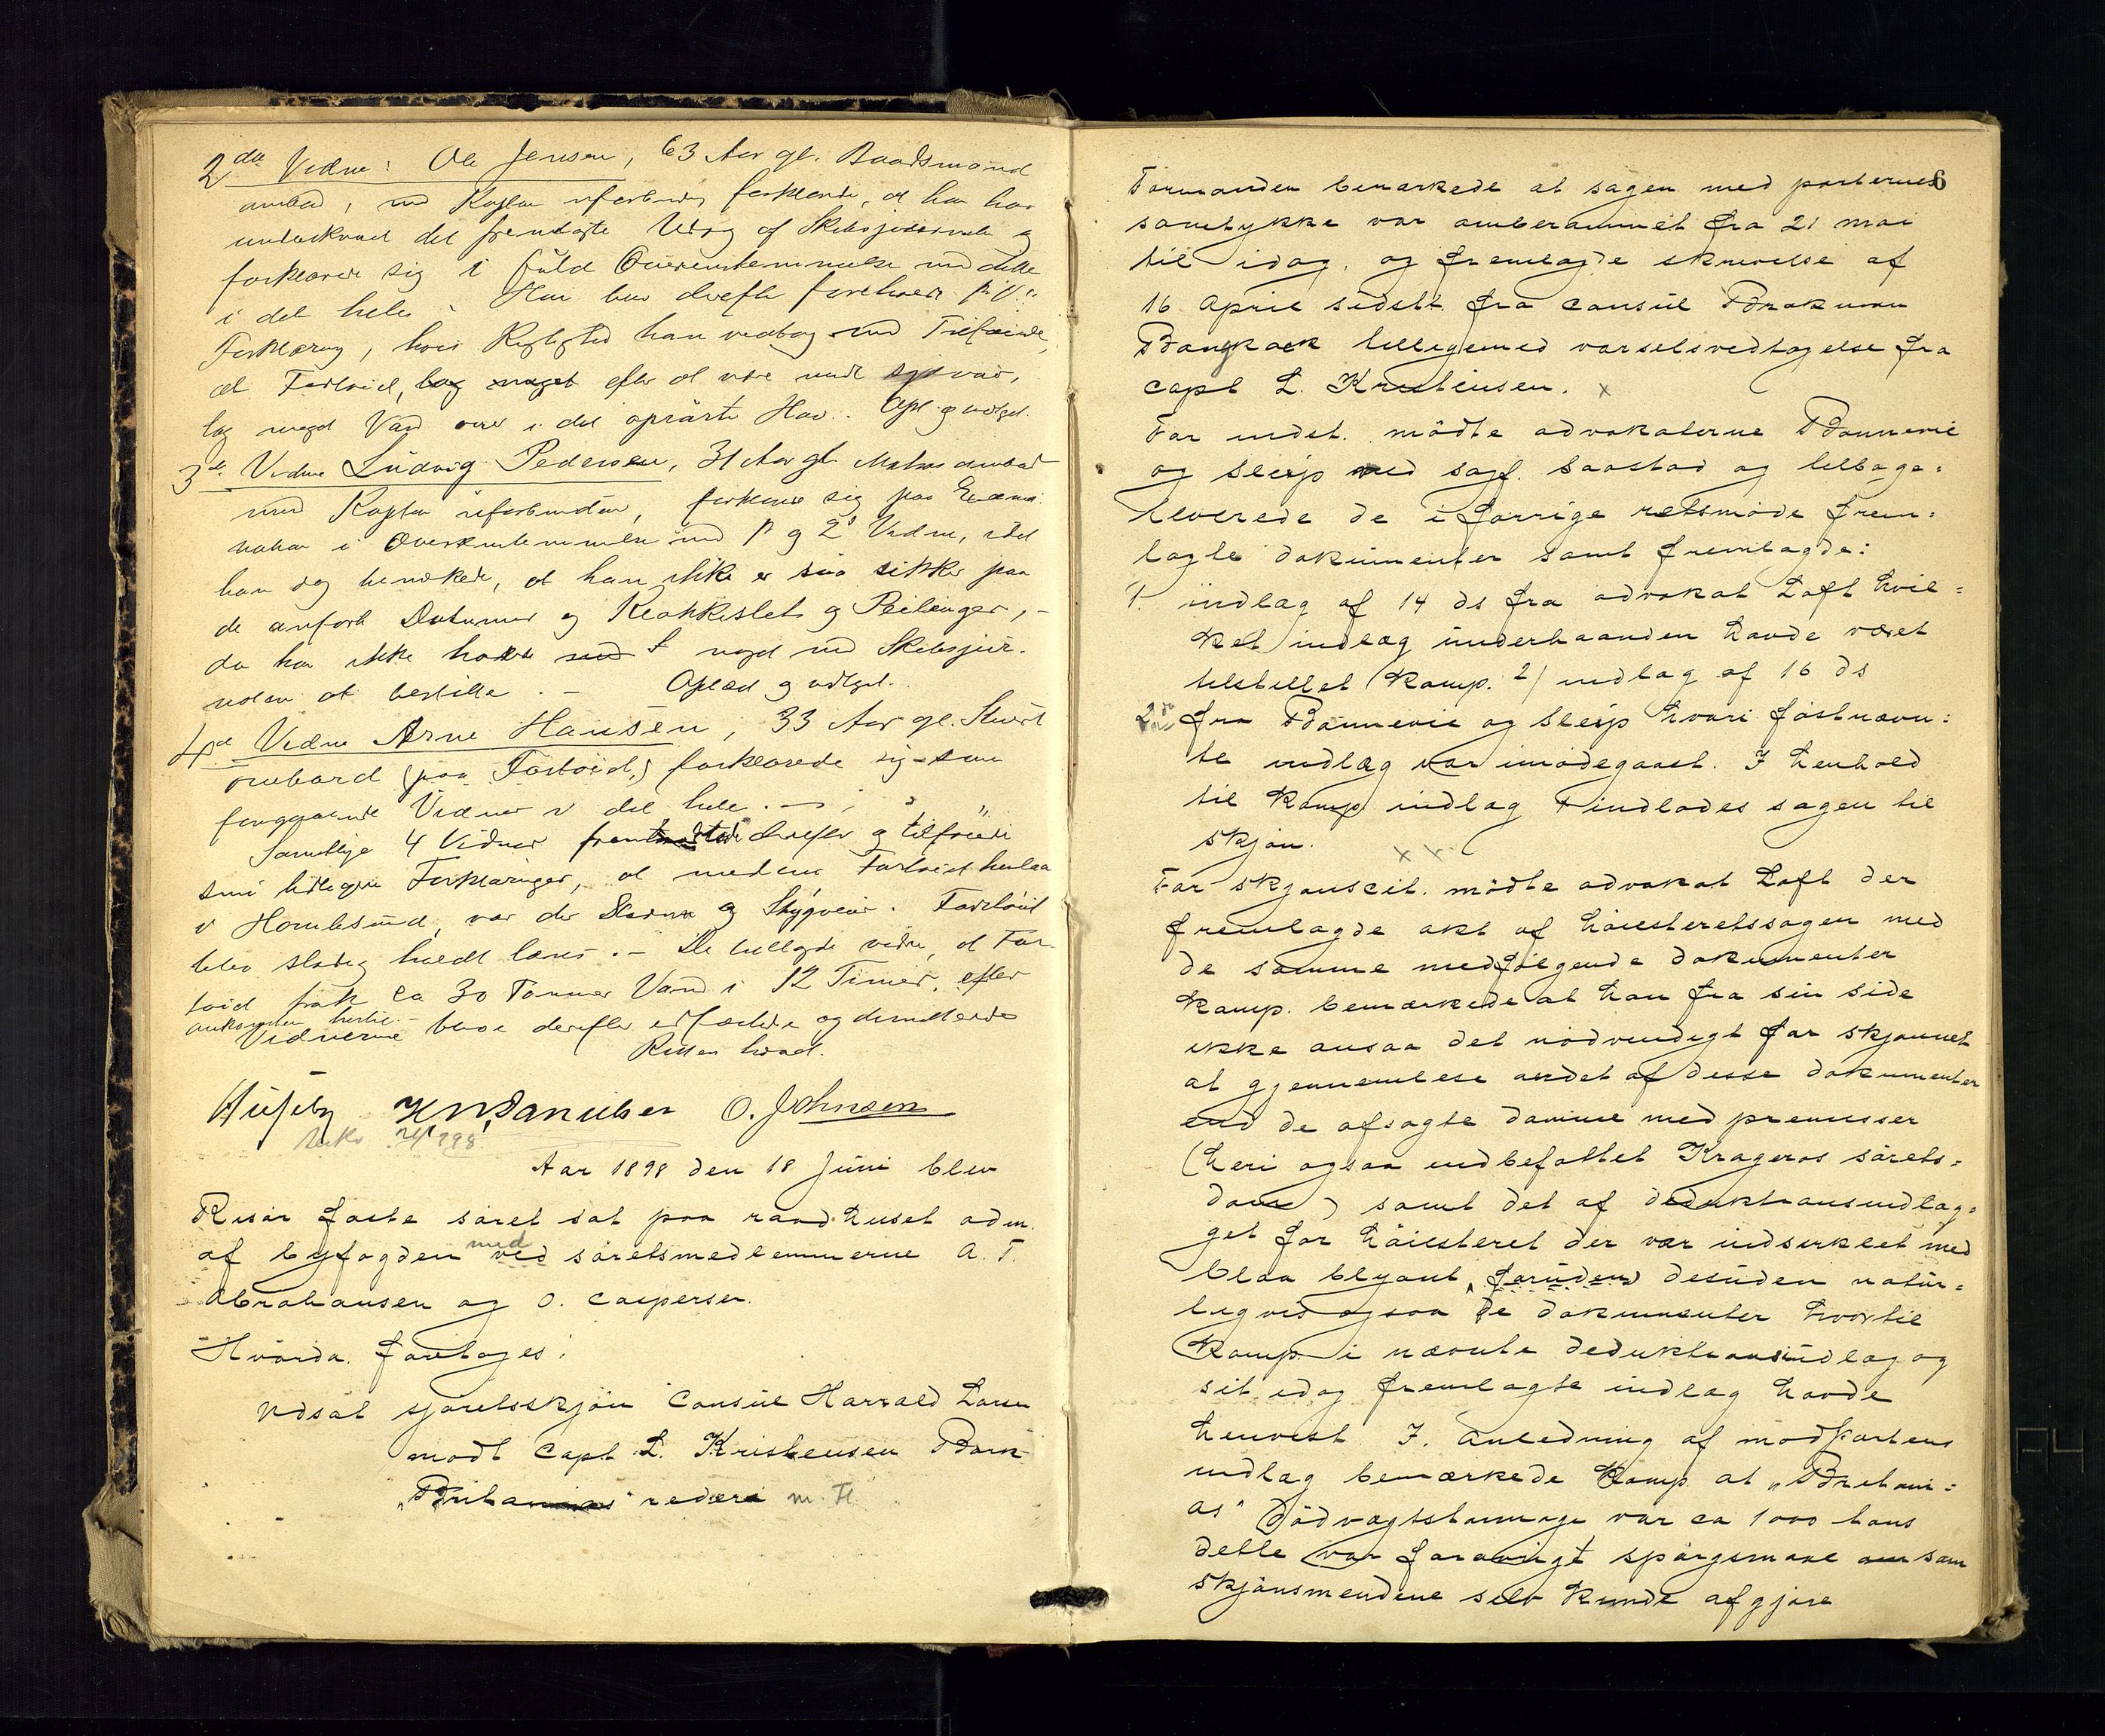 2det Vidne: Ole Jensen, 63 Aar gl. Baadsmand
ombord, med Kaptn uforbunden, forklarede, at han har
underskrevet det fremlagte Udtog af Skibsjournalen og
forklarer sig i fuld Overensstemmelse med dette
i det hele. Han blev derefter forelæst 1ste V.s
Forklaring, hvis Rigtighed han vedtog med Tilføiende,
at Fartøiet, efter at være
tog meget Vand over i det oprørte Hav. Opl. og vedtget.
3de Vidne Ludvig Pedersen, 31 Aar gl. Matros ombord
med Kaptn uforbunden, forklarer sig paa Exami-
nation i Overensstemmelse med 1ste og 2det Vidne, idet
han dog bemærkede, at han ikke er saa sikker paa
de anførte Datumer og Klokkeslet og Peilinger,
da han ikke havde noget med Skibsjour-
nalen at bestille. – Oplæst og vedtget.
4de Vidne Arne Hansen, 33 Aar gl. Stuert
ombord (paa Fartøiet,) forklarede sig som
foregaaende Vidner i det hele. –
Samtlige 4 Vidner derefter og tilføiede
sine tidligere Forklaringer, at medens Fartøiet henlaa
i Homlesund, var der Storm og Stygveir. Fartøiet
blev stadig holdt læns. – De tillagde videre, at Far-
tøiet trak ca 30 Tommer Vand i 12 Timer, efter
ankomsten hertil. –
Vidnerne blev derefter edfæstede og dimitterede
Retten hævet.
Huseby H N Danielsen O. Johnsen
Aar 1898 den 18 Juni blev
Risør faste søret sat paa raadhuset adm.
af byfogden med ved søretsmedlemmerne A. T.
Abrahamsen og O. Caspersen.
Hvorda. foretages:
Udsat sjøretsskjøn Consul Harrald Larsen
modt Capt L. Kristensen Bark
„Britanias" rederi m. Fl.
6
Formanden bemærkede at sagen med parternes
samtykke var omberammet fra 21 mai
til idag, og fremlagde skrivelse af
16 April sidstl. fra consul Brakman
Bangkock tilligemed varselsvedtagelse fra
capt L. Kristensen. x
For indst. mødte advokaterne Bonnevie
og Sleip med sagf. Saastad og tilbage-
leverede de i forrige retsmøde frem-
lagte dokumenter samt fremlagde:
1. indlæg af 14 ds fra advokat Loft hvil-
ket indlæg underhaanden havde været
tilstillet Komp. 2/ indlæg af 16 ds
2. fra Bonnevie og Sleip hvori førstnævn-
te indlæg var imødegaaet. I henhold
til Komp indlæg indlodes sagen til
skjøn. x x
For skjønscit. mødte advokat Loft der
fremlagde akt af høiesteretssagen med
de samme medfølgende dokumenter
Komp. bemærkede at han fra sin side
ikke ansaa det nødvendigt for skjønnet
at gjennemlese andet af disse dokumenter
end de afsagte domme med premisser
(heri ogsaa indbefattet Kragerøs sørets-
dom) samt det af deduktionsindlæg-
get for høiesteret der var indsirklet med
blaa blyant, foruden desuden natur-
ligvis ogsaa de dokumenter hvortil
Komp i nævnte deduktionsindlæg og
sit idag fremlagte indlæg havde
henvist I. Anledning af modpartens
indlæg bemærkede Komp. at „Britani-
as" dødvægtstonnage var ca 1000 tons
dette var forøvrigt spørgsmaal som
skjønsmendene selv kunde afgjøre